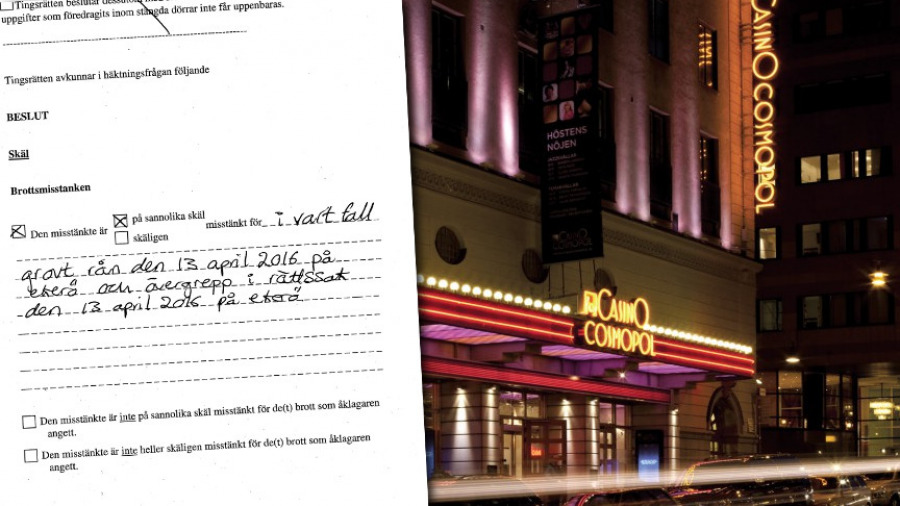 Tingsrätten beslutar dessutom
uppgifter som föredragits inom stängda dörrar inte får uppenbaras.
Tingsrätten avkunnar i häktningsfrågan följande
BESLUT
Skäl
Brottsmisstanken
Den misstänkte är
på sannolika skäl
skäligen
misstänkt för i vart fall
grovt rån den 13 april 2016 på
ekerö och övergrepp i rättssak
den 13 april 2016 på ekerö
Den misstänkte är inte på sannolika skäl misstänkt för de(t) brott som åklagaren
angett.
Den misstänkte är inte heller skäligen misstänkt för de(t) brott som åklagaren
angett.
HÖSTENS
NÖJEN
CASINO COSMOPOL
CASINO
COSMOPOL
CASINO
COSMOPOL